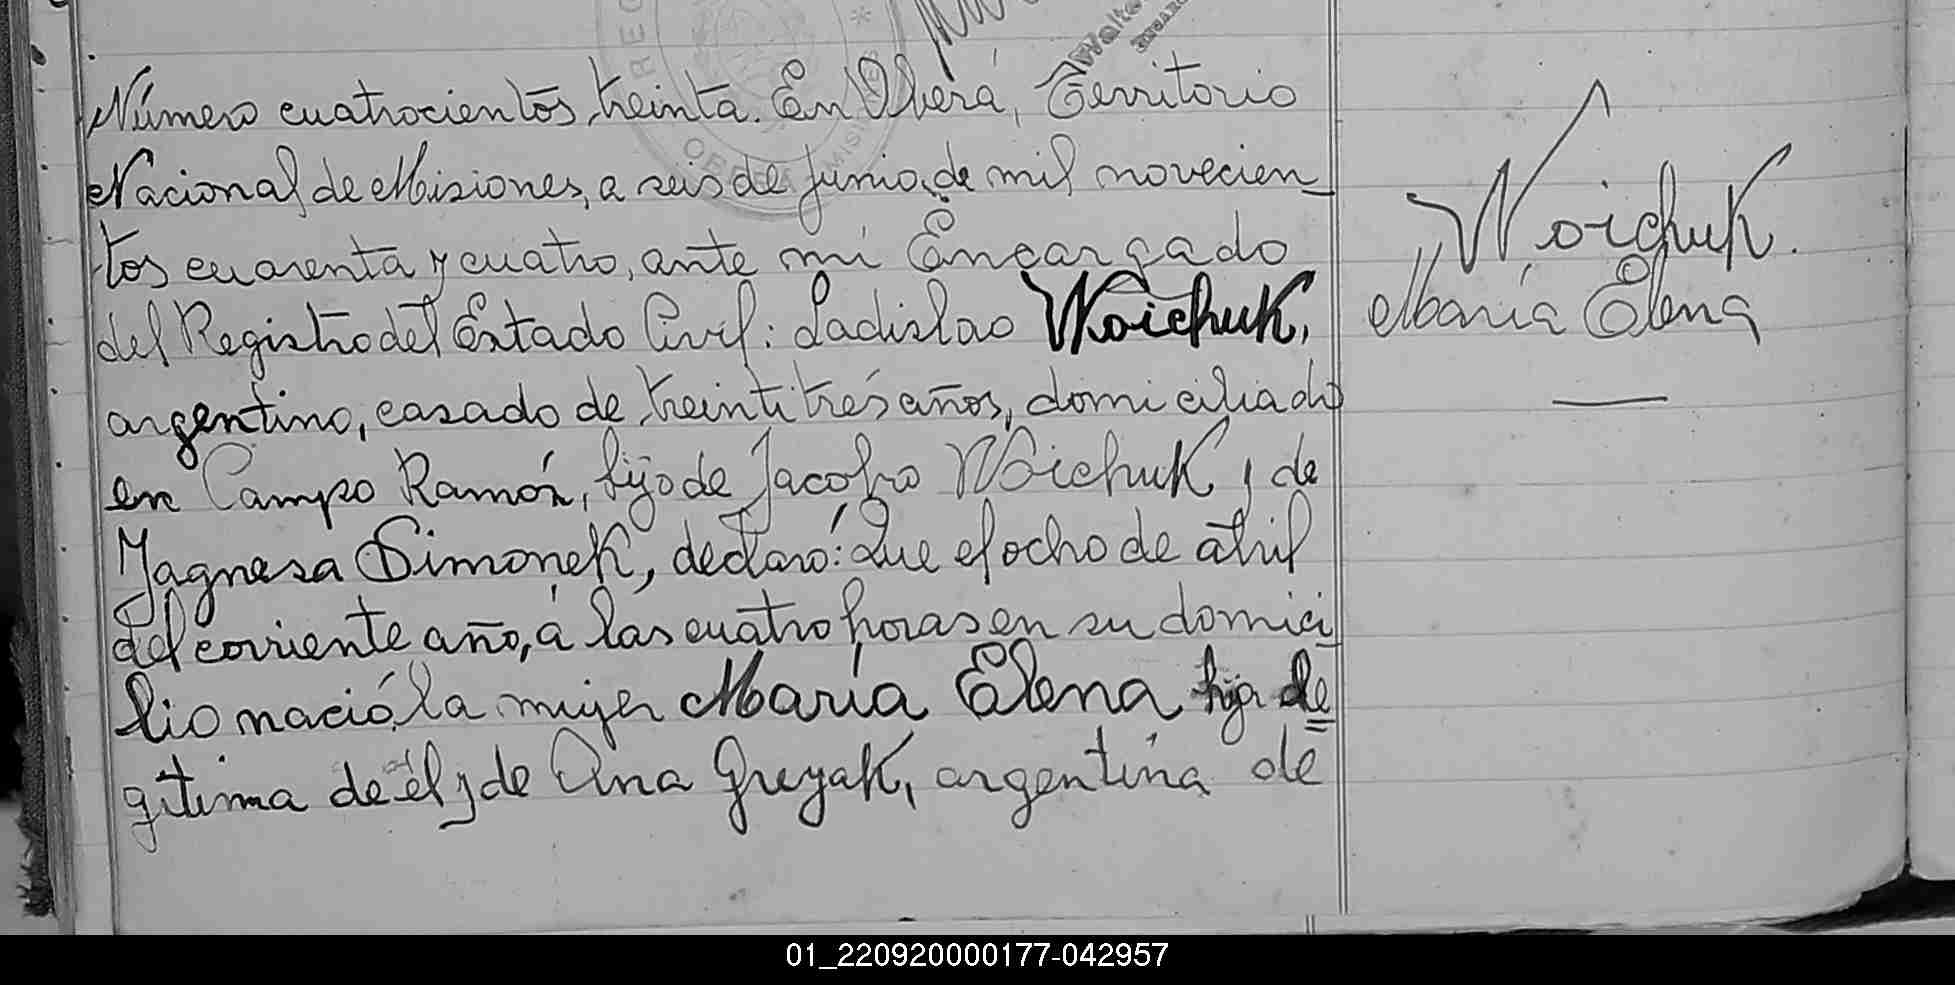 Número cuatrocientos treinta. En Oberá, Territorio
Nacional de Misiones, a seis de junio, de mil novecien_
tos cuarenta y cuatro, ante mí Encargado
del Registro del Estado Civil: Ladislao Woichuk,
argentino, casado de treinti trés años, domiciliado
en Campo Ramón, hijo de Jacobo Woichuk y de
Jagnesa Simonek, declaró: Que el ocho de abril
del corriente año, á las cuatro horas en su domici_
lio nació la mujer María Elena hija le=
gitima de él y de Ana Greyak, argentina de
Woichuk.
María Elena
REG
OBERÁ MISIONES
Walte
ENCARG
01_220920000177-042957